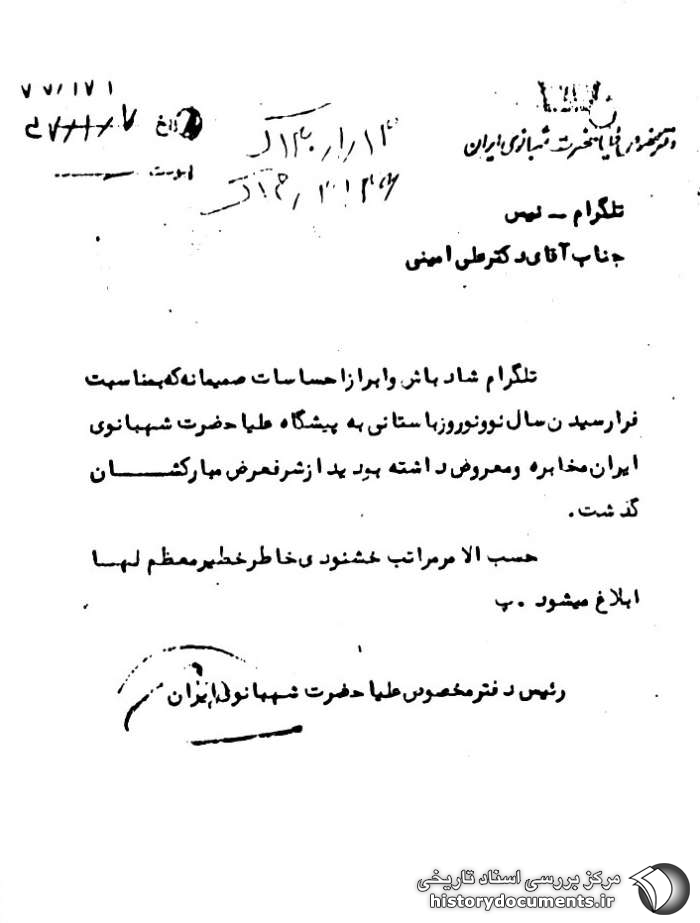 دفتر مخصوص علیاحضرت شهبانوی ایران
تاریخ
پیوست
تلگرام - نیس
جناب آقای دکترعلی امینی
تلگرام شاد باش وابرازاحساسات صمیمانه که بمناسبت
فرارسیدن سال نوونوروزباستانی به پیشگاه علیاحضرت شهبانوی
ایران مخابره ومعروض داشته بودید ازشرفعرض مبارکشان
گذشت.
حسب الامرمراتب خشنودی خاطرخطیرمعظم لها
ابلاغ میشود .پ
رئیس دفترمخصوص علیاحضرت شهبانوی ایران
مرکز بررسی اسناد تاریخی
historydocuments.ir